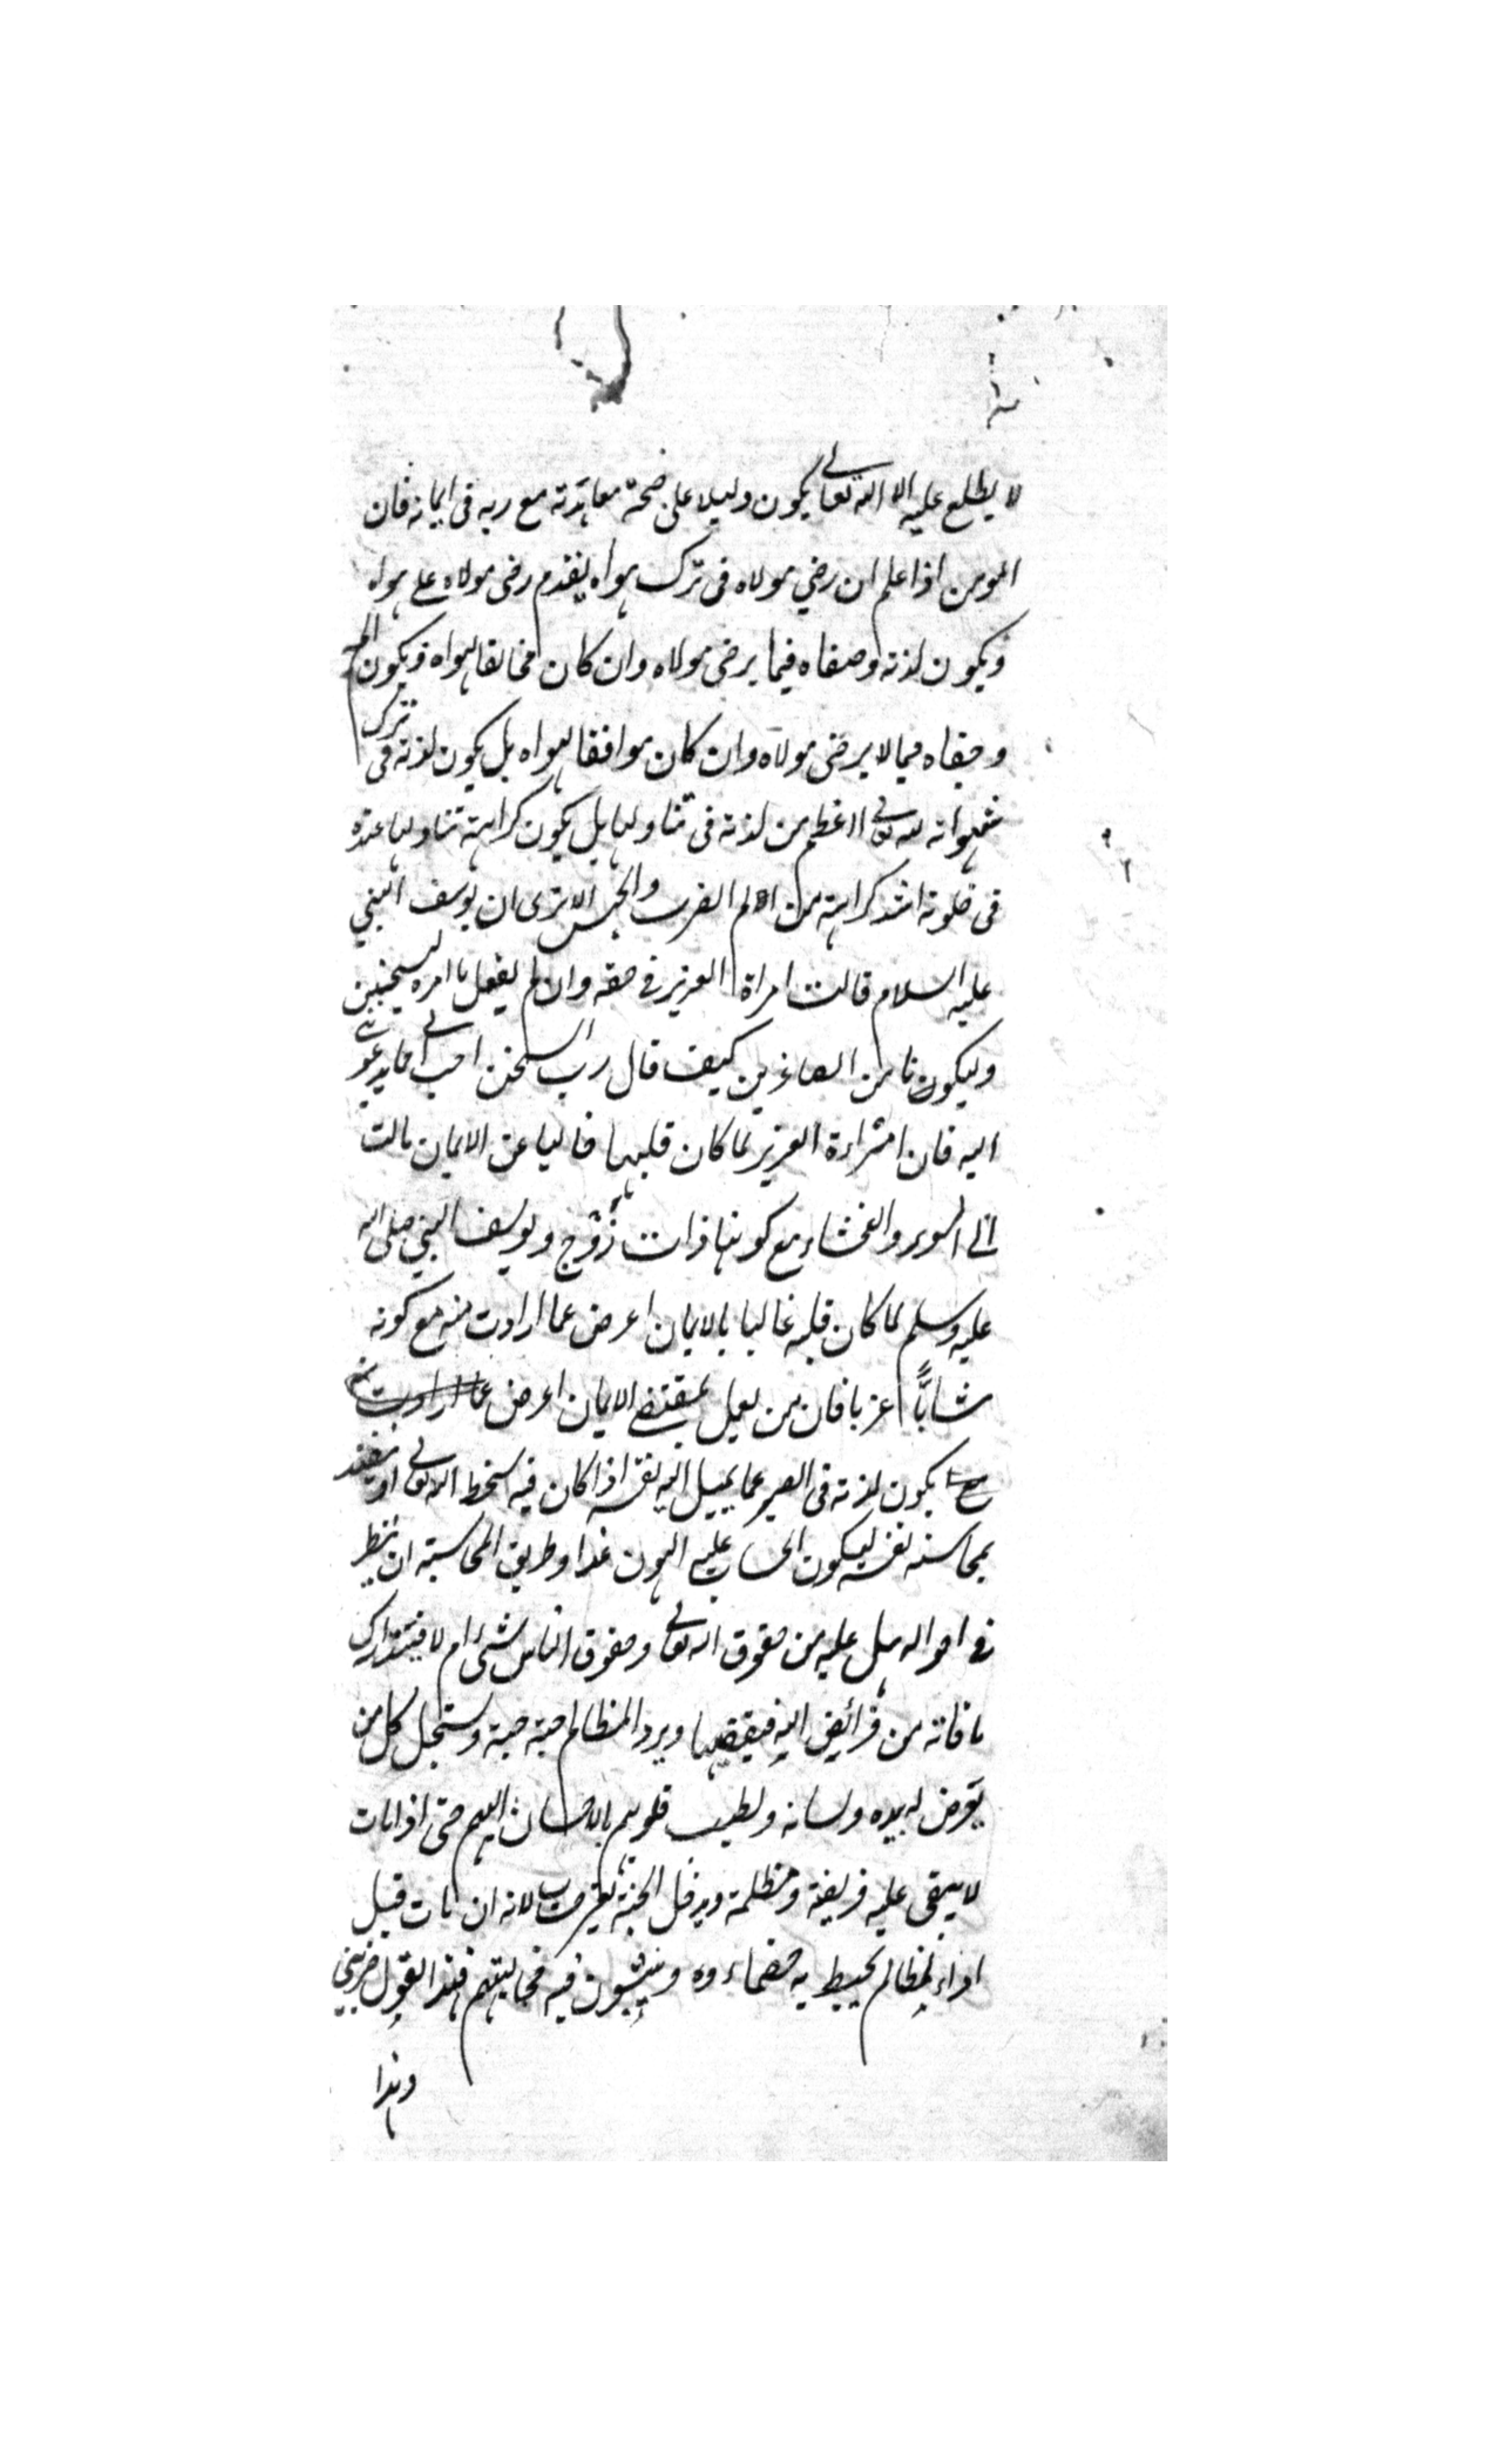 لا يطلع عليه الا الله تعالى يكون دليلا على صحة معاهدته مع ربه فى ايمانه فان
المومن اذا علم ان رضي مولاه فى ترك هواه يقدم رضى مولاه على هواه
ويكون لذته وصفاه فيما يرضى مولاه وان كان مخالفا لهواه ويكون الم
وجفاه فيما لا يرضى مولاه وان كان موافقا لهواه بل يكون لذته فى ترك
شهواته لله تعالى اعظم من لذته فى تناولها بل يكون كراهته تناولها عنده
فى خلوته اشد كراهته من الم الضرب والحبس الا ترى ان يوسف النبي
عليه السلام قالت امراة العزيز فى حقه وان لم يفعل ما امره ليسجنين
وليكونا من الصاغرين كيف قال رب السجن احب الى مما يدعونى
اليه فان امراءة العزيز لما كان قلبها خاليا عن الايمان مالت
الى السوء والفحشاء مع كونها ذات زوج ويوسف النبي صلى الله
عليه وسلم لما كان قلبه غالبا بالايمان اعرض عما ارادت منه مع كونه
شابًّا عزبا فان من يعمل بمقتضى الايمان اعرض عما ارادت منه
مع يكون لذته فى الصبر عما يميل اليه نفسه اذا كان فيه سخط الله تعالى او
بمحاسبة نفسه ليكون الحساب عليه اهون غدا وطريق المحاسبته ان ينظر
فى احواله هل عليه من حقوق الله تعالى وحقوق الناس شئ ام لا فيتدارك
ما فاته من فرائض الله فيقضيها ويرد المظالم حبة حبة ويستحل كل من
يعرض له بيده ولسانه ويطيب قلوبهم بالاحسان اليهم حتى اذا مات
لا يبقى عليه فريضة ومظلمة ويدخل الجنة بغير حساب لانه ان مات قبل
اداء المظالم يحيط به خصماءوه وينشبون فيه مخاليبهم فهذا يقول ضربنى
وهذا